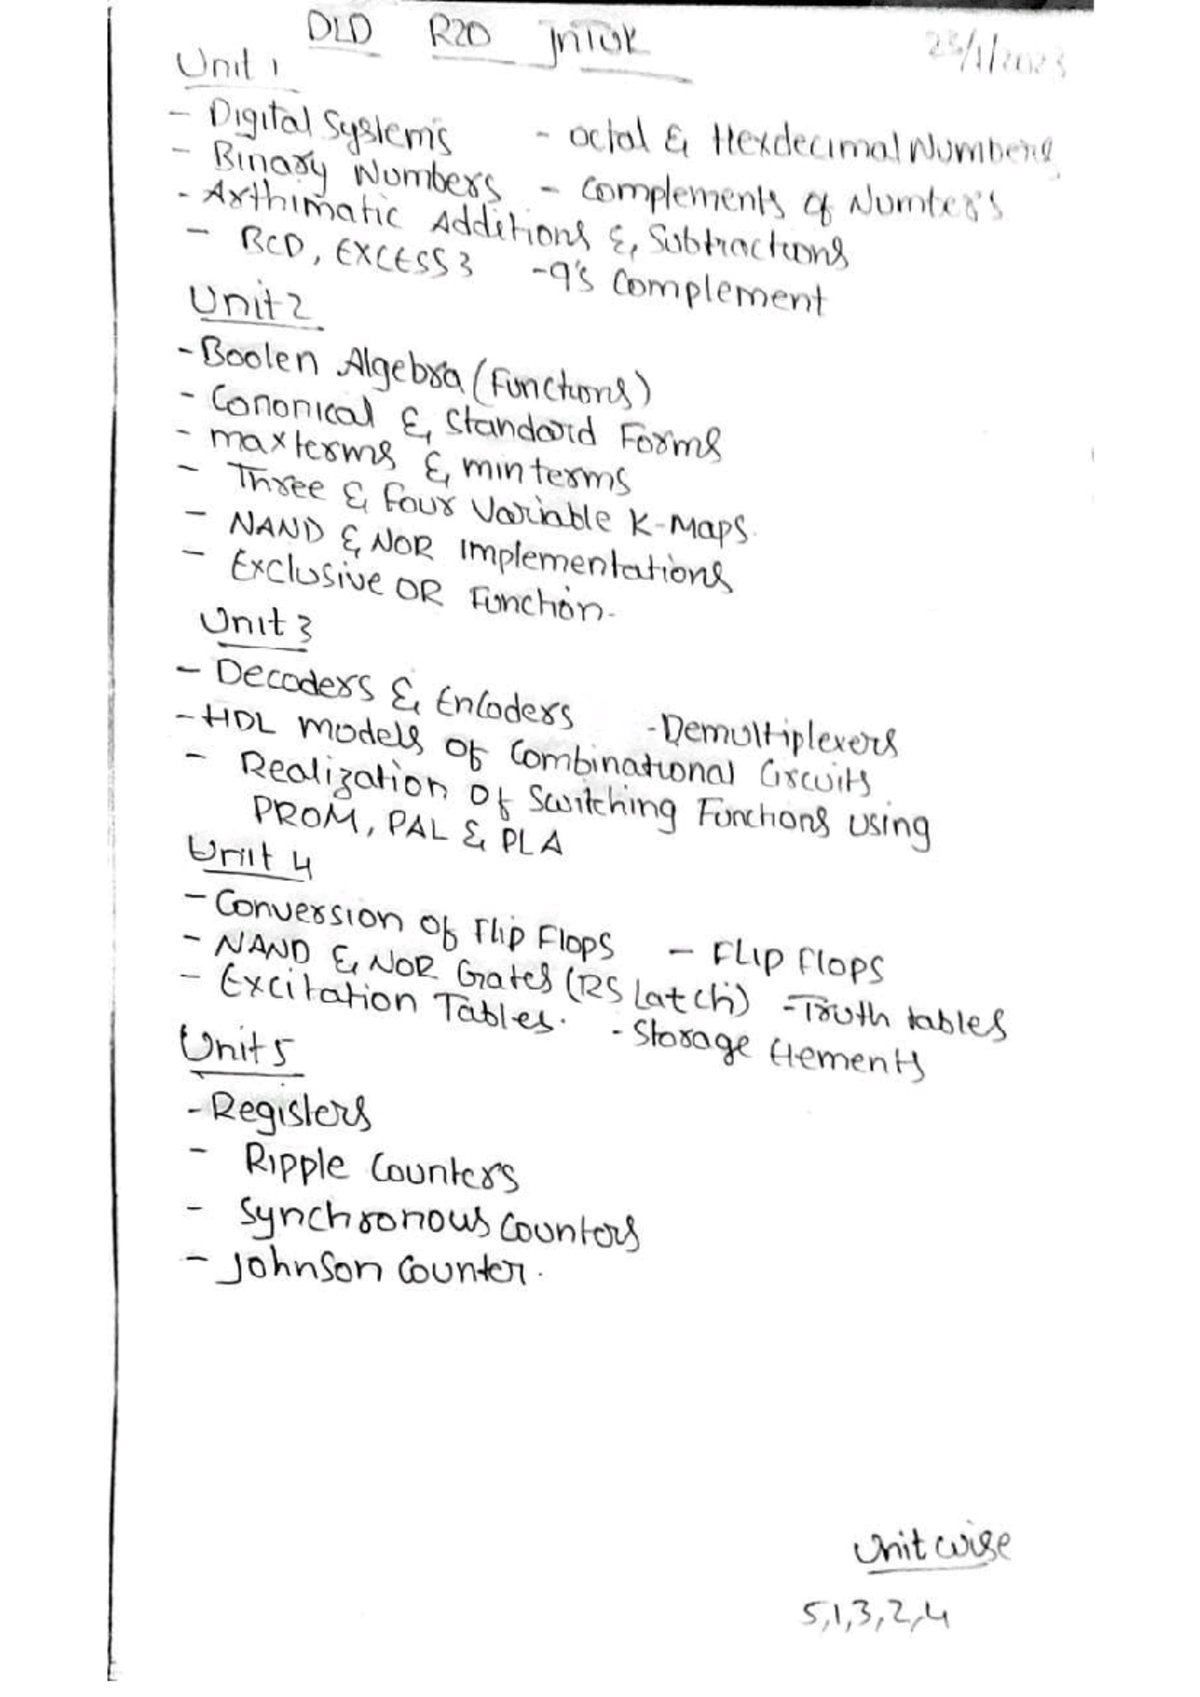 DLD R20 JNTUK 23/1/2023
Unit 1
- Digital Systems - Octal & Hexdecimal Numbers
- Binary Numbers - Complements of Number's
- Arthimatic Additions & Subtractions
- BCD, EXCESS 3 - 9's Complement
Unit 2
- Boolen Algebra (Functions)
- Cononical & Standard Forms
- maxterms & minterms
- Three & four Variable K-Maps.
- NAND & NOR Implementations
- Exclusive OR Function.
Unit 3
- Decoders & Encoders - Demultiplexers
- HDL models of Combinational Circuits
- Realization Of Switching Functions using
PROM, PAL & PLA
Unit 4
- Conversion of Flip Flops - FLIP flops
- NAND & NOR Gates (RS Latch) - Truth tables
- Excitation Tables. - Storage Elements
Unit 5
- Registers
- Ripple Counters
- Synchronous Counters
- Johnson Counter.
Unit wise
5,1,3,2,4